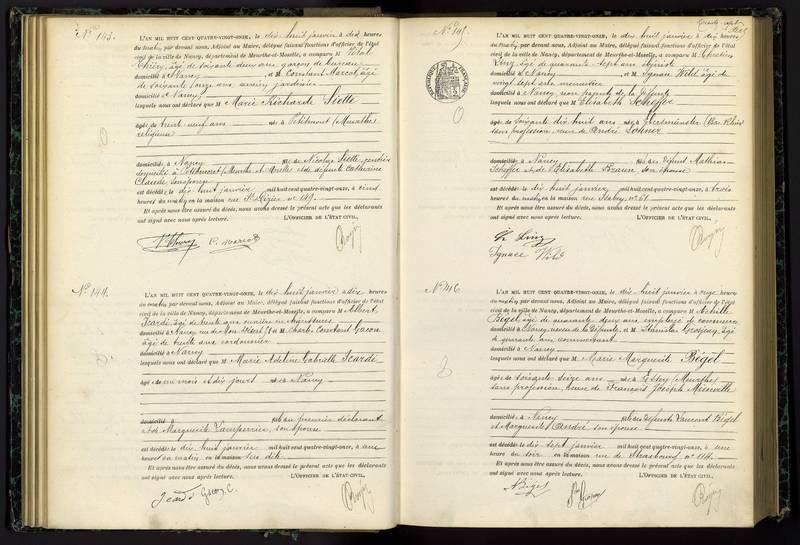 N° 143.
L'AN MIL HUIT CENT QUATRE-VINGT-ONZE, le dix huit janvier à dix heures
du matin, par devant nous, Adjoint au Maire, délégué faisant fonctions d'officier de l'état
civil de la ville de Nancy, département de Meurthe-et-Moselle, a comparu M. Vital
Thiéry, âgé de soixante deux ans garçon de bureau
domicilié à Nancy, et M. Constant Marcot, âgé
de soixante ans, ancien jardinier
domicilié à Nancy
lesquels nous ont déclaré que Marie Richarde Siette
âgée de trente neuf ans née à Petitmont (Meurthe)
religieuse
domiciliée à Nancy fille de Nicolas Siette,
domicilié à Petitmont (Meurthe et Moselle) et de défunte Catherine
Claude
est décédée le dix huit janvier mil huit cent quatre-vingt-onze, à cinq
heures du matin en la maison rue n° 149.
Et après nous être assuré du décès, nous avons dressé le présent acte que les déclarants
ont signé avec nous après lecture. L'OFFICIER DE L'ÉTAT CIVIL,
Thiery C. Marcot
N° 144.
L'AN MIL HUIT CENT QUATRE-VINGT-ONZE, le dix huit janvier à dix heures
du matin, par devant nous, Adjoint au Maire, délégué faisant fonctions d'officier de l'état
civil de la ville de Nancy, département de Meurthe-et-Moselle, a comparu M. Albert
Icardi, âgé de trente ans,
domicilié à Nancy rue et M. Charles Constant
âgé de trente ans cordonnier
domicilié à Nancy
lesquels nous ont déclaré que Marie Adeline Gabrielle Icardi
âgée de un mois et dix jours née à Nancy
domiciliée à fille du premier déclarant
et de Marguerite son épouse
est décédée le dix huit janvier mil huit cent quatre-vingt-onze, à une
heure du matin en la maison dite
Et après nous être assuré du décès, nous avons dressé le présent acte que les déclarants
ont signé avec nous après lecture. L'OFFICIER DE L'ÉTAT CIVIL,
Icardi
N° 145.
L'AN MIL HUIT CENT QUATRE-VINGT-ONZE, le dix huit janvier à dix heures
du matin, par devant nous, Adjoint au Maire, délégué faisant fonctions d'officier de l'état
civil de la ville de Nancy, département de Meurthe-et-Moselle, a comparu M. Chrétien
Linz, âgé de quarante sept ans
domicilié à Nancy et M. Ignace Wild âgé de
vingt sept ans menuisier
domicilié à Nancy, non parents de la défunte
lesquels nous ont déclaré que Elisabeth Scheffer
âgée de soixante dix huit ans née à Ebersmünster (Bas Rhin)
sans profession, veuve de André Lohner
domiciliée à Nancy fille des défunts Mathias
Scheffer et de Elisabeth Braun, son épouse
est décédée le dix huit janvier mil huit cent quatre-vingt-onze, à trois
heures du matin en la maison rue n° 61
Et après nous être assuré du décès, nous avons dressé le présent acte que les déclarants
ont signé avec nous après lecture. L'OFFICIER DE L'ÉTAT CIVIL,
Ch Linz
Ignace Wild
N° 146
L'AN MIL HUIT CENT QUATRE-VINGT-ONZE, le dix huit janvier à onze heures
du matin, par devant nous, Adjoint au Maire, délégué faisant fonctions d'officier de l'état
civil de la ville de Nancy, département de Meurthe-et-Moselle, a comparu M. Achille
Bégel âgé de quarante deux ans, employé de commerce
domicilié à Nancy, neveu de la défunte, et M. Stanislas Grosjean, âgé
de quarante ans commerçant
domicilié à Nancy
lesquels nous ont déclaré que Marie Marguerite Bégel
âgée de soixante seize ans née à Essey (Meurthe)
sans profession, veuve de François Joseph
domiciliée à Nancy fille des défunts Laurent Bégel
et Marguerite André son épouse
est décédée le dix sept janvier mil huit cent quatre-vingt-onze, à une
heure du soir en la maison rue de Strasbourg, n° 114.
Et après nous être assuré du décès, nous avons dressé le présent acte que les déclarants
ont signé avec nous après lecture. L'OFFICIER DE L'ÉTAT CIVIL,
ABégel